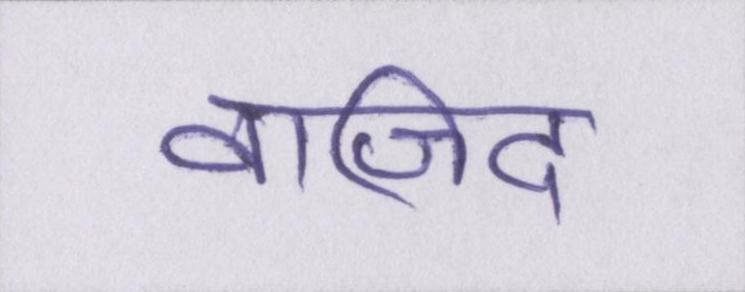 वाजिद